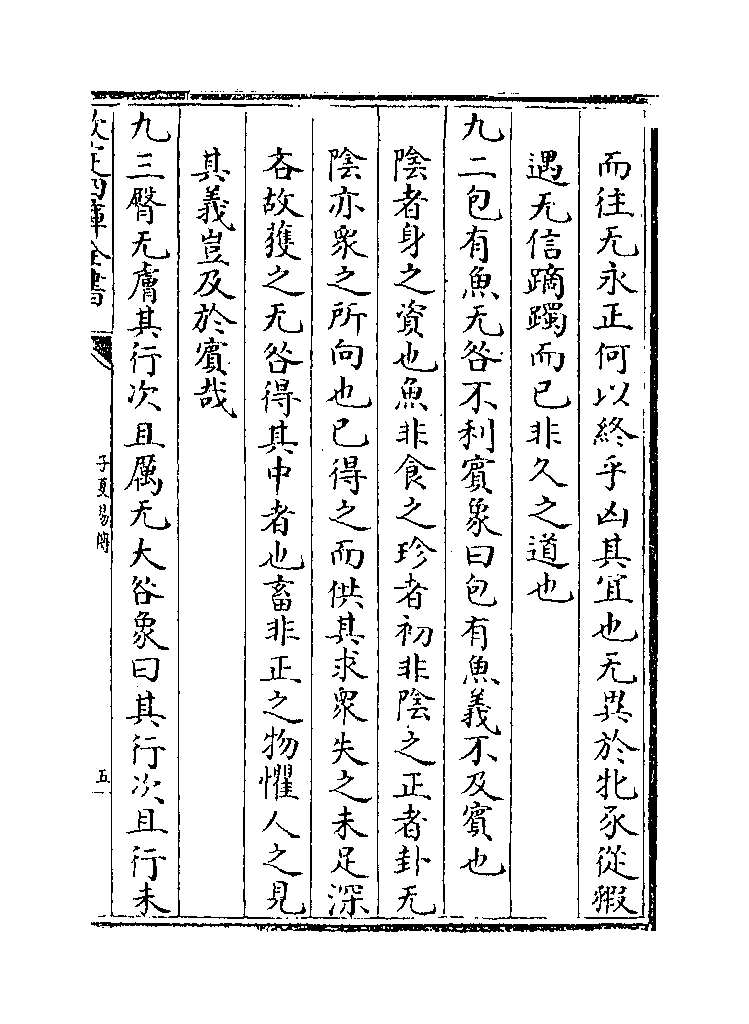 而往无永正何以終乎凶其宜也无異於牝豕從豭
遇无信蹢躅而已非久之道也
九二包有魚无咎不利賓象曰包有魚義不及賓也
陰者身之資也魚非食之珍者初非陰之正者卦无
陰亦衆之所向也已得之而供其求衆失之未足深
吝故獲之无咎得其中者也畜非正之物懼人之見
其義豈及於賓哉
九三臀无膚其行次且厲无大咎象曰其行次且行未
欽定四庫全書
子夏易傳
五